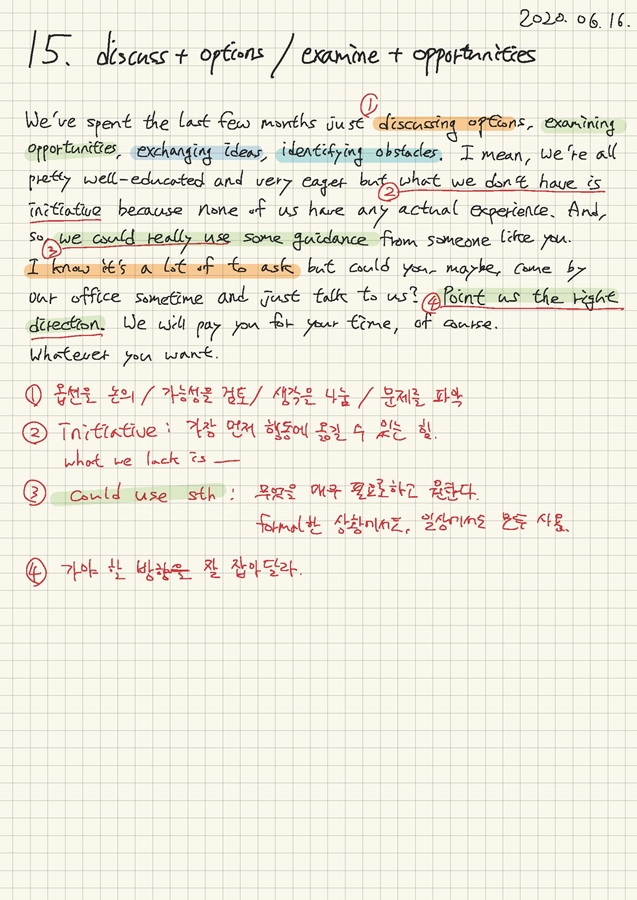 2020. 06. 16.
15. discuss + options / examine + opportunities
①
We've spent the last few months just discussing options, examining
opportunities, exchanging ideas, identifying obstacles. I mean, we're all
pretty well-educated and very eager but ② what we don't have is
initiative because none of us have any actual experience. And,
so ③ we could really use some guidance from someone like you.
I know it's a lot of to ask but could you, maybe, come by
our office sometime and just talk to us? ④ Point us the right
direction. We will pay you for your time, of course.
Whatever you want.
① 옵션을 논의 / 가능성을 검토 / 생각을 나눔 / 문제를 파악
② Initiative : 가장 먼저 행동에 옮길 수 있는 힘.
what we lack is —
③ Could use sth : 무엇을 매우 필요로하고 원한다.
formal한 상황에서도, 일상에서도 모두 사용.
④ 가야 할 방향을 잘 잡아달라.